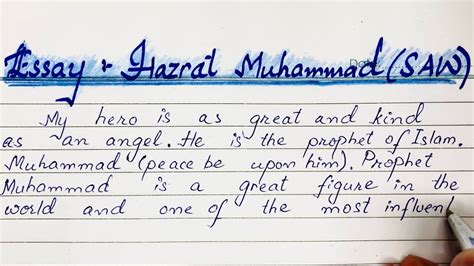 Essay :- Hazrat Muhammad (SAW)
My hero is as great and kind
as an angel. He is the prophet of Islam.
Muhammad (peace be upon him). Prophet
Muhammad is a great figure in the
world and one of the most influen